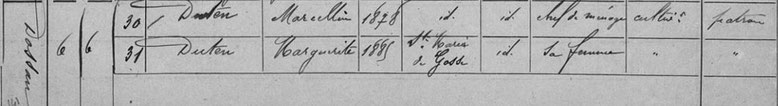 30 Duten Marcellin 1878 id. id. chef de ménage cultivr patron
Dossau 6 6
31 Duten Marguerite 1885 Ste Marie de Gosse id. sa femme " "